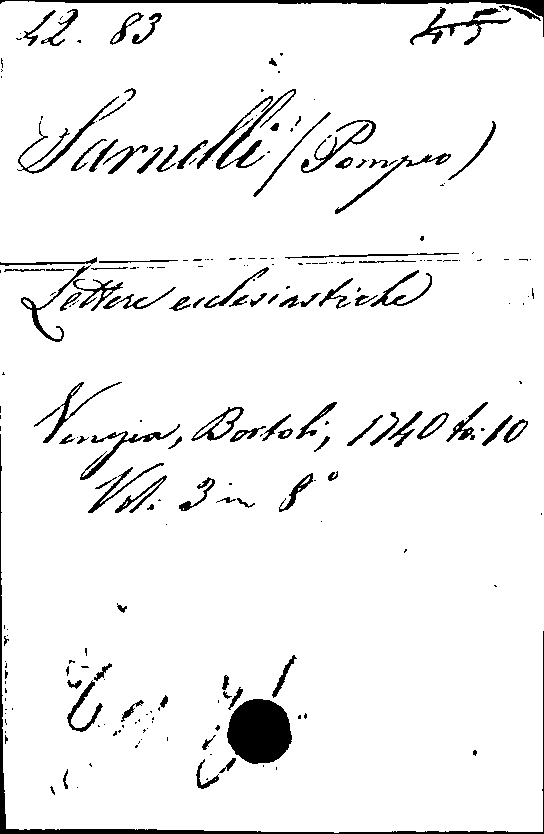 42. 83 45
Sarnelli (Pompeo)
Lettere ecclesiastiche
Venezia, Bortoli, 1740 to: 10
Vol. 3 in 8°